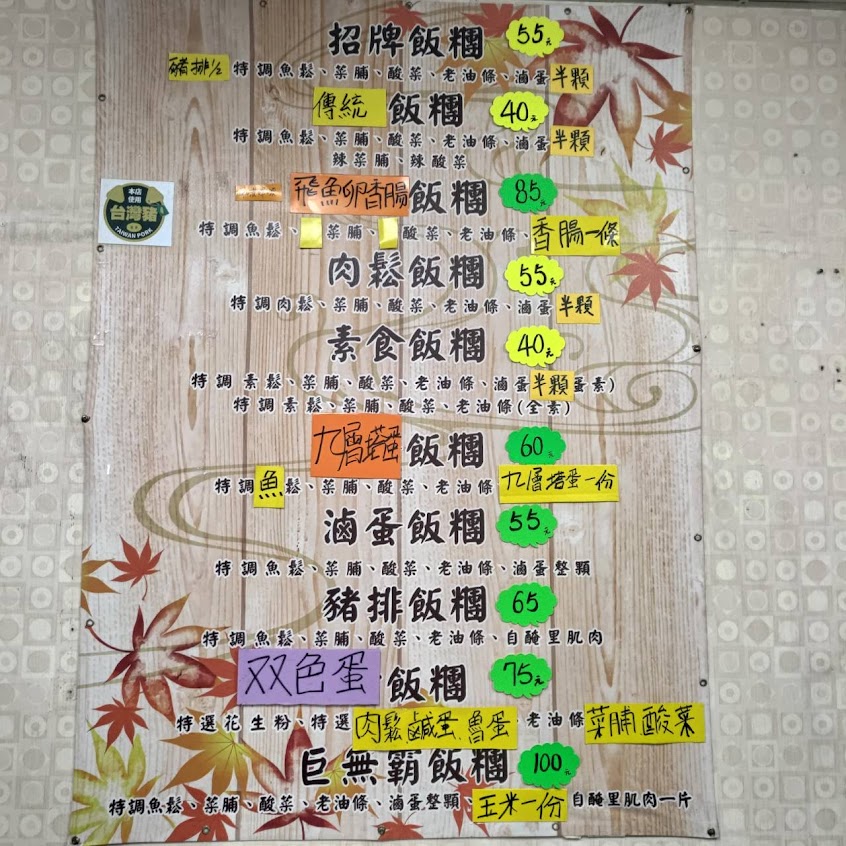 招牌飯糰 55元
豬排½ 特調魚鬆、菜脯、酸菜、老油條、滷蛋半顆
傳統飯糰 40元
特調魚鬆、菜脯、酸菜、老油條、滷蛋半顆
辣菜脯、辣酸菜
飛魚卵香腸飯糰 85元
本店
使用
台灣豬
TAIWAN PORK
特調魚鬆、菜脯、酸菜、老油條、香腸一條
肉鬆飯糰 55元
特調肉鬆、菜脯、酸菜、老油條、滷蛋半顆
素食飯糰 40元
特調素鬆、菜脯、酸菜、老油條、滷蛋半顆蛋素)
特調素鬆、菜脯、酸菜、老油條(全素)
九層塔蛋飯糰 60元
特調魚鬆、菜脯、酸菜、老油條 九層塔蛋一份
滷蛋飯糰 55元
特調魚鬆、菜脯、酸菜、老油條、滷蛋整顆
豬排飯糰 65元
特調魚鬆、菜脯、酸菜、老油條、自醃里肌肉
双色蛋飯糰 75元
特選花生粉、特選肉鬆鹹蛋、魯蛋 老油條菜脯酸菜
巨無霸飯糰 100元
特調魚鬆、菜脯、酸菜、老油條、滷蛋整顆、玉米一份 自醃里肌肉一片